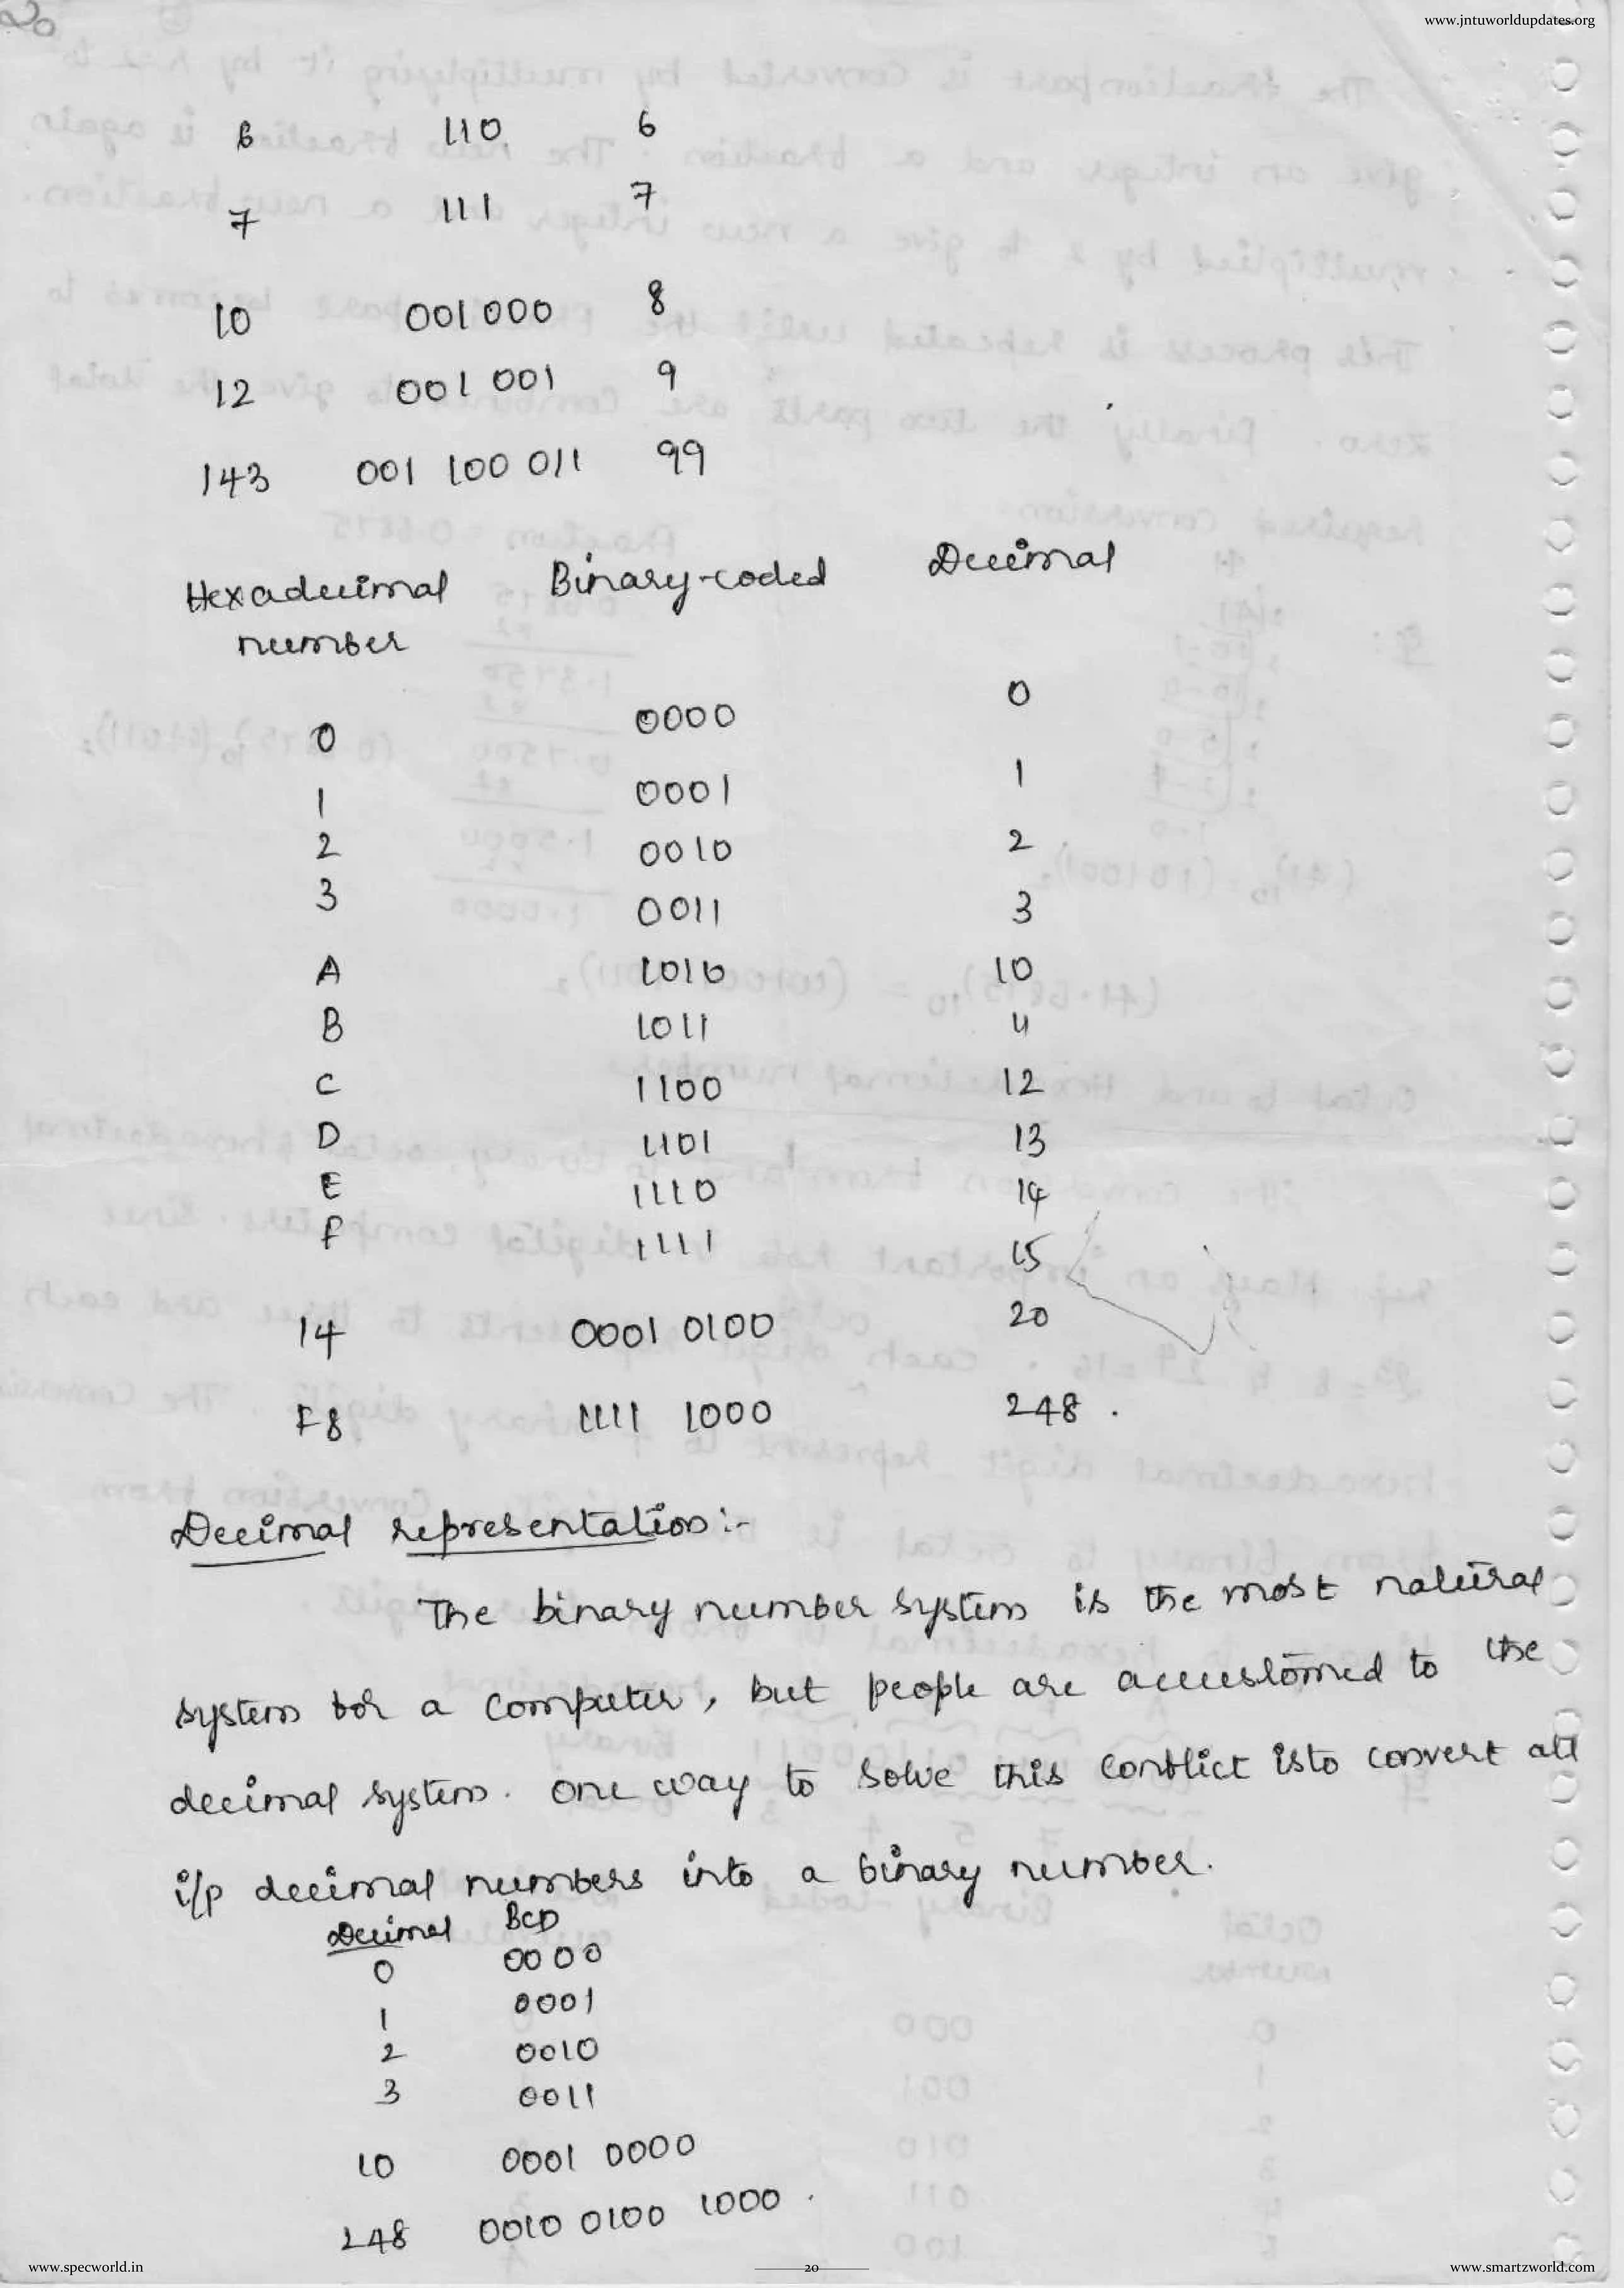 20
www.jntuworldupdates.org
6 110 6
7 111 7
10 001 000 8
12 001 001 9
143 001 100 011 99
Hexadecimal Binary-coded Decimal
number
0 0000 0
1 0001 1
2 0010 2
3 0011 3
A 1010 10
B 1011 11
C 1100 12
D 1101 13
E 1110 14
F 1111 15
14 0001 0100 20
F8 1111 1000 248.
Decimal representation:-
The binary number system is the most natural
system for a computer, but people are accustomed to the
decimal system. one way to solve this conflict is to convert all
i/p decimal numbers into a binary number.
Decimal BCD
0 0000
1 0001
2 0010
3 0011
10 0001 0000
248 0010 0100 1000.
www.specworld.in
20
www.smartzworld.com